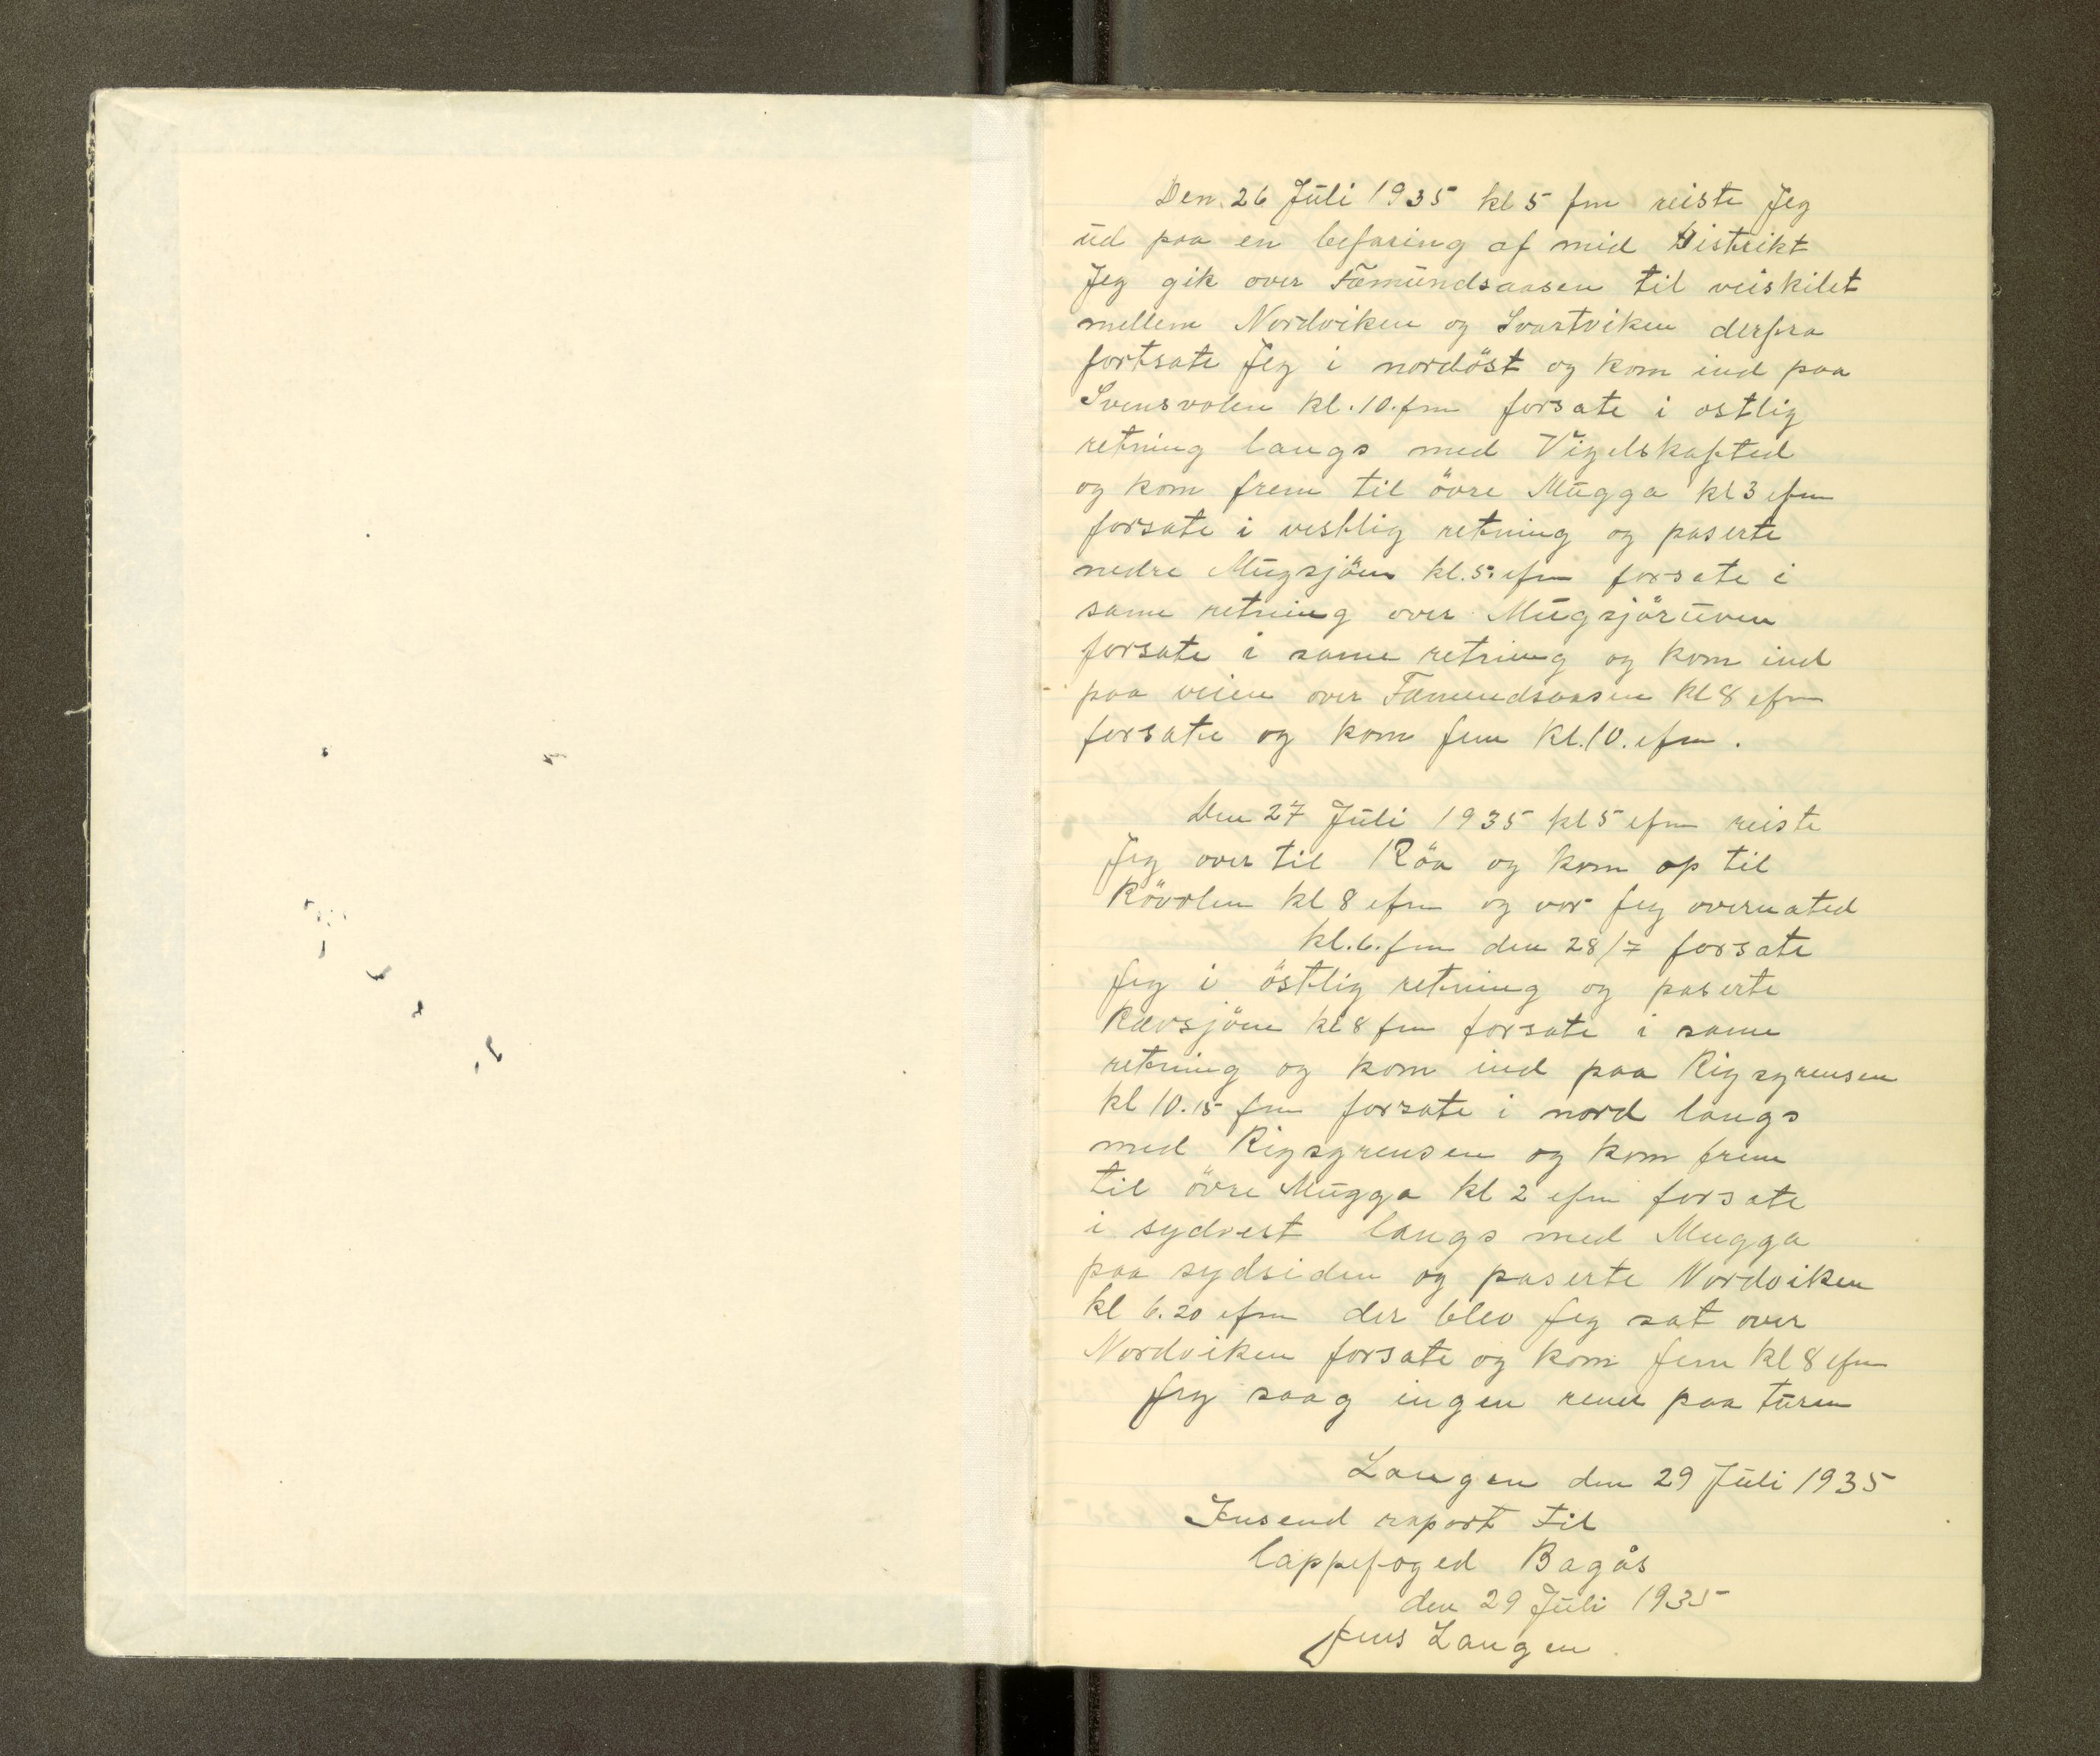 Den. 26 Jüli 1935 kl 5 fm reiste Jeg
üd paa en befaring af mid Distrikt
Jeg gik over Fæmündsaasen til veiskilet
mellem Nordviken og Svartviken derfra
fortsate Jeg i nordöst og kom ind paa
Svensvolen kl. 10. fm forsate i ostlig
retning langs med Vigelskafted
og kom frem til övre Mügga kl 3 efm
forsate i vestlig retning og paserte
nedre Mügsjöen kl. 5. efm forsate i
same retning over Mügsjörüven
forsate i same retning og kom ind
paa veien over Fæmundsaasen kl 8 efm
forsate og kom jem kl. 10. efm.
Den 27 Jüli 1935 kl 5 efm reiste
Jeg over til Röa og kom op til
Rövolen kl 8 efm og vor Jeg overnated
kl. 6. fm den 28/7 forsate
Jeg i östlig retning og paserte
Rævsjöen kl 8 fm forsate i same
retning og kom ind paa Rigsgrensen
kl 10.15 fm forsate i nord langs
med Rigsgrensen og kom frem
til övre Mügga kl 2 efm forsate
i sydvest langs med Mugga
paa sydsiden og paserte Nordviken
kl 6.20 efm der blev Jeg sat over
Nordviken forsate og kom jem kl 8 efm
Jeg saag ingen rener paa türen
Langen den 29 Jüli 1935
Insend raport til
lappefoged Bagås
den 29 Jüli 1935
Jens Langen